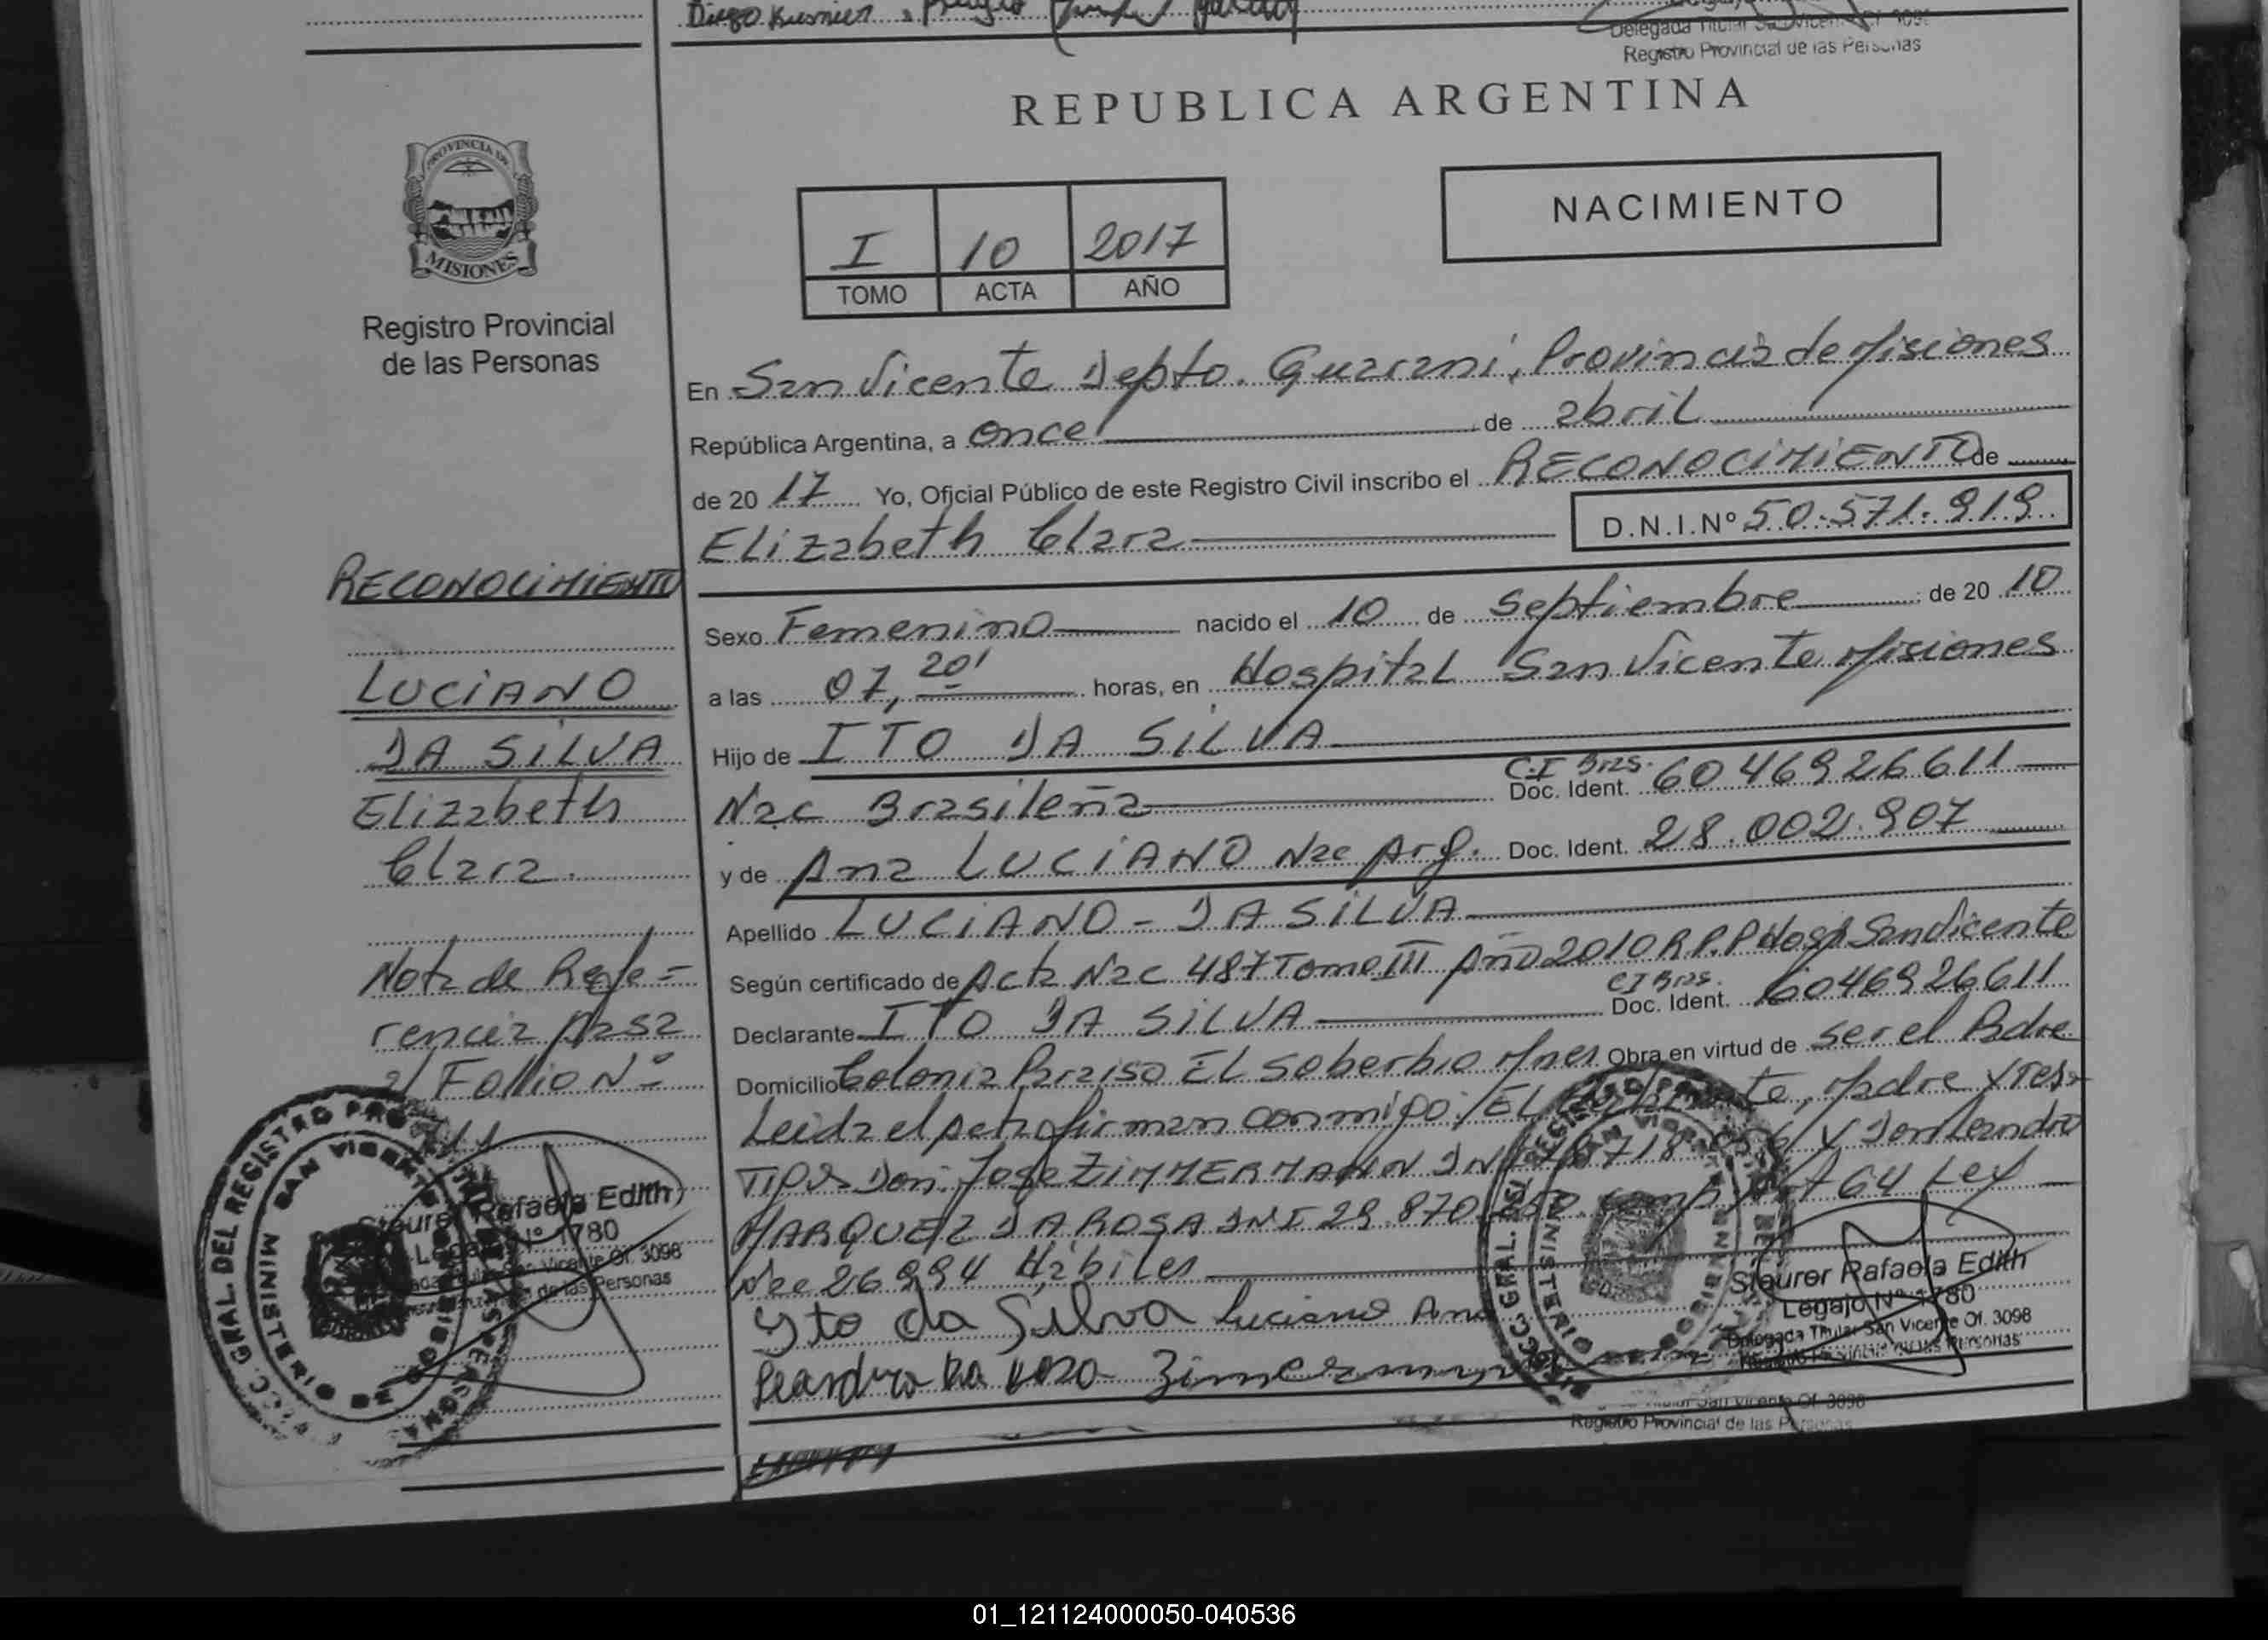 Diego Kusnier
Delegada Titular San Vicente Of. 3098
Registro Provincial de las Personas
REPUBLICA ARGENTINA
PROVINCIA DE
MISIONES
Registro Provincial
de las Personas
I 10 2017
TOMO ACTA AÑO
NACIMIENTO
En San Vicente Depto. Guarani, Provincia de Misiones
República Argentina, a once de abril
de 20 17 Yo, Oficial Público de este Registro Civil inscribo el RECONOCIMIENTO de
Elizabeth Clara D.N.I.Nº 50.571.919
Sexo Femenino nacido el 10 de Septiembre de 20 10
a las 07, 20' horas, en Hospital San Vicente Misiones
Hijo de ITO DA SILVA
Nac Brasileña C.I Bras. Doc. Ident. 6046926611
y de Ana LUCIANO Nac Arg. Doc. Ident. 28.002.907
Apellido LUCIANO - DA SILVA
Según certificado de Acta Nac 487 Tomo III Año 2010 R.P.P Hosp San Vicente
Declarante ITO DA SILVA CI Bras. Doc. Ident. 6046926611
Domicilio Colonia Paraiso El Soberbio Mnes Obra en virtud de ser el Padre
Leida el Acta firman conmigo: El , Madre y Tes-
tigos Don: Jose ZIMMERMANN DNI y Don Leandro
MARQUEZ DA ROSA DNI 29.870. Art 64 Ley
Nac 26994 Hábiles
Ito da Silva Luciano Ana
Leandro Da Rosa
RECONOCIMIENTO
LUCIANO
DA SILVA
Elizabeth
Clara.
Nota de Refe=
rencia Pasa
al Folio Nº
Steurer Rafaela Edith
Legajo Nº 1780
San Vicente Of. 3098
de las Personas
Steurer Rafaela Edith
Legajo Nº 1780
Delegada Titular San Vicente Of. 3098
Registro Provincial de las Personas
Titular San Vicente Of. 3098
Registro Provincial de las Personas
01_121124000050-040536